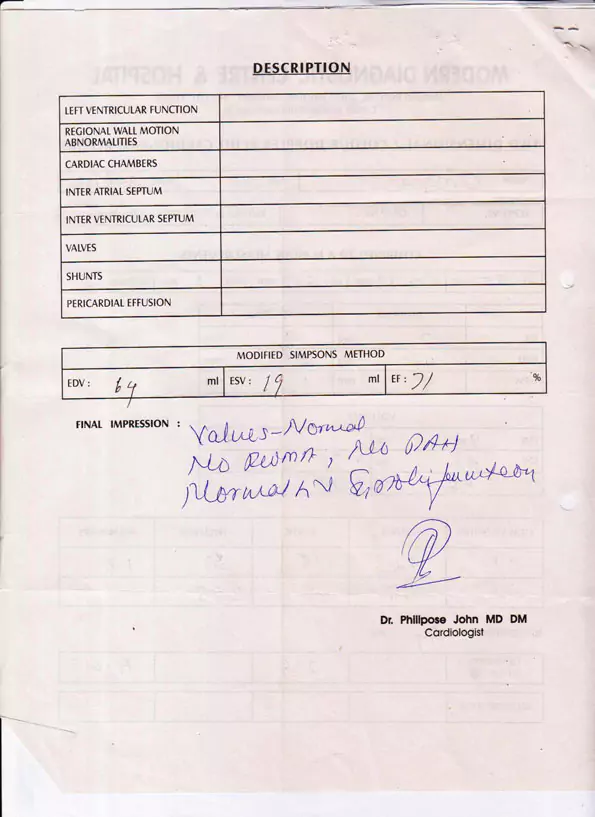 DESCRIPTION
LEFT VENTRICULAR FUNCTION
REGIONAL WALL MOTION
ABNORMALITIES
CARDIAC CHAMBERS
INTER ATRIAL SEPTUM
INTER VENTRICULAR SEPTUM
VALVES
SHUNTS
PERICARDIAL EFFUSION
MODIFIED SIMPSONS METHOD
EDV : 64 ml ESV : 19 ml EF : 71 %
FINAL IMPRESSION : Values-Normal
No RWMA, No PAH
Normal LV Systolic function
Dr. Philipose John MD DM
Cardiologist